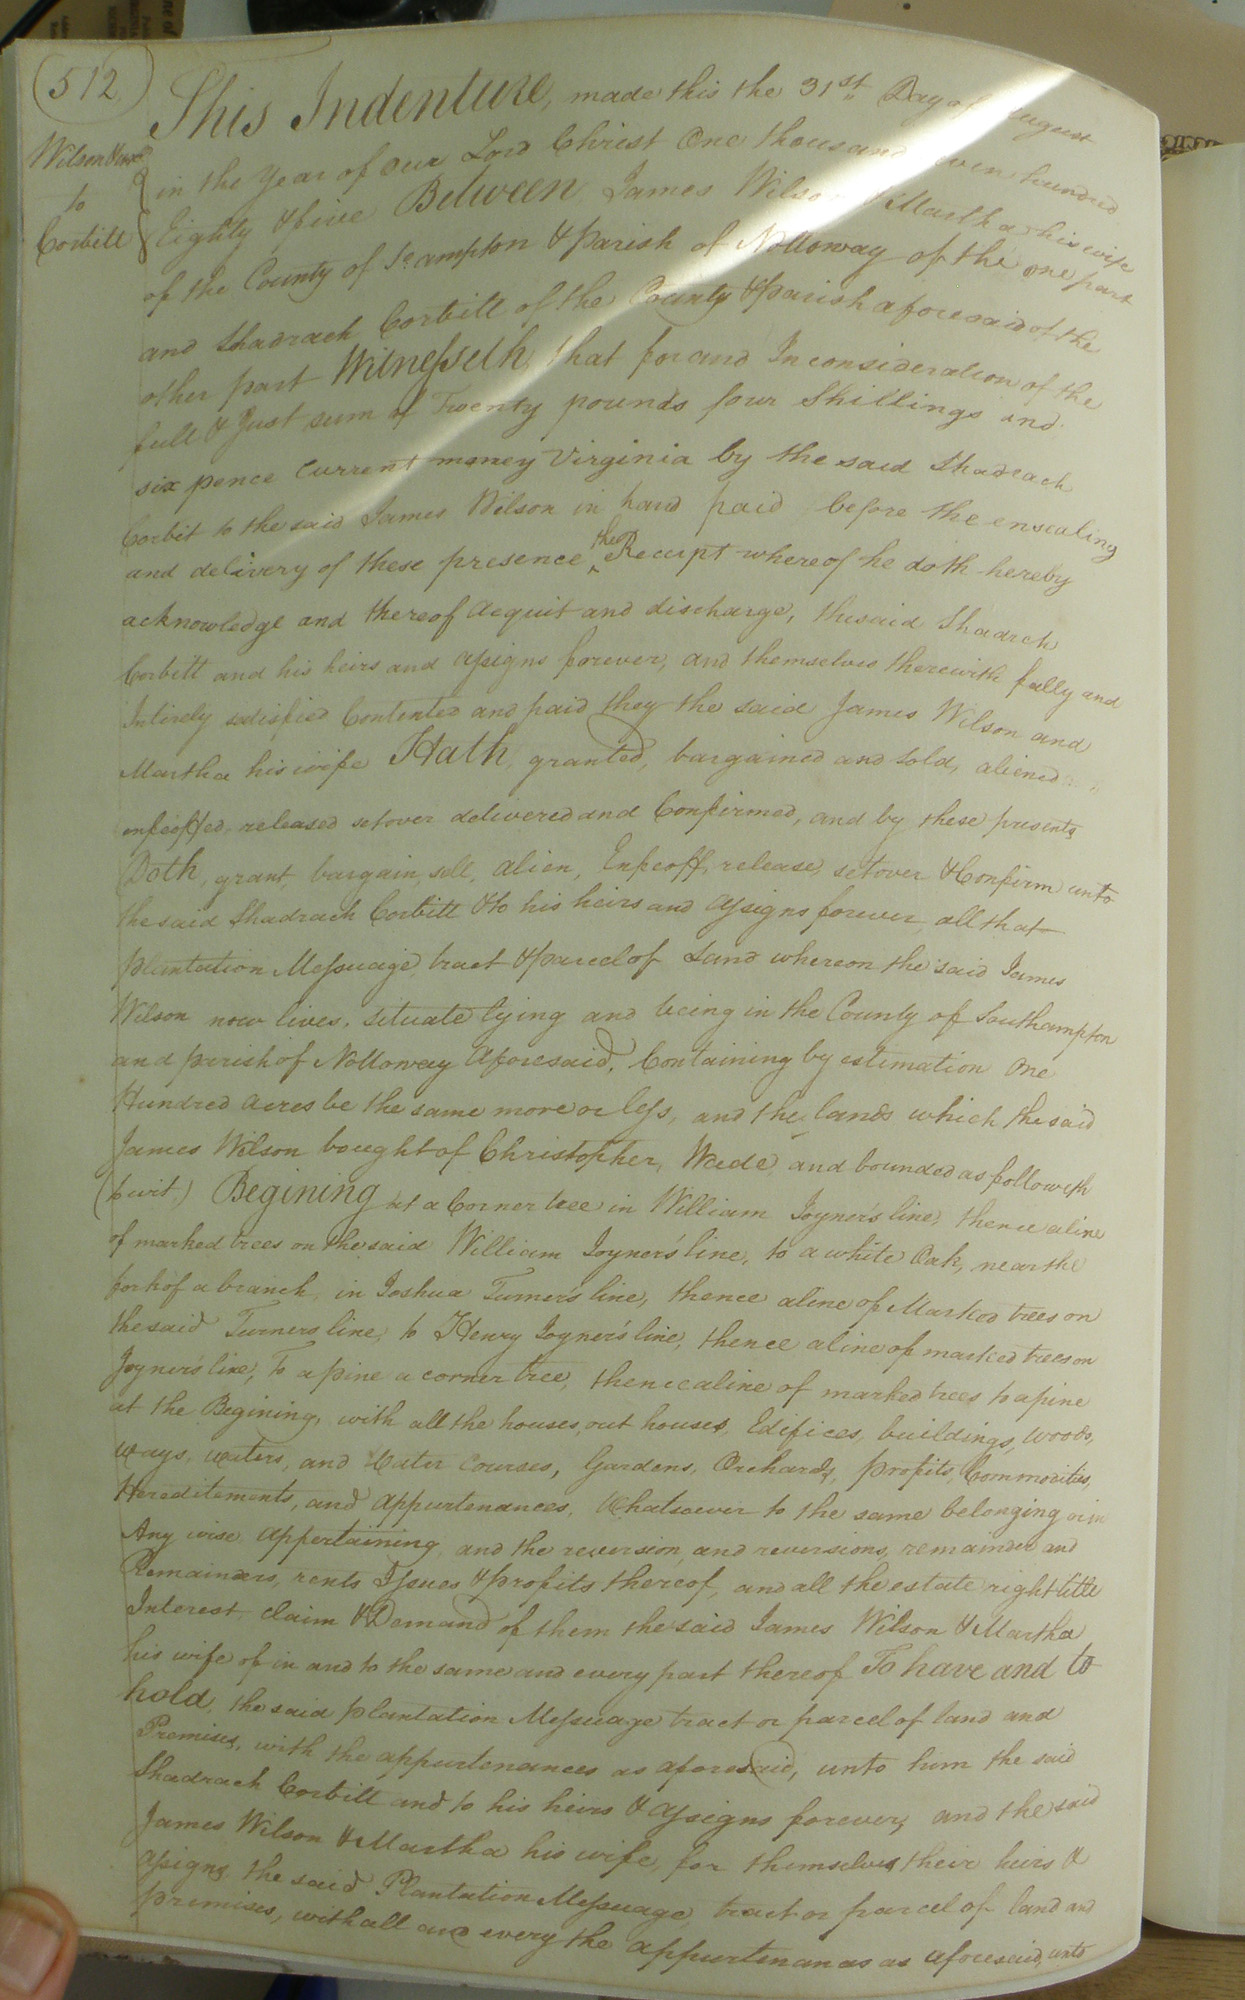 512
Wilson & uxr
to
Corbitt
This Indenture, made this the 31st Day of August
in the Year of Our Lord Christ One thousand seven hundred
Eighty & five Between James Wilson & Martha his wife
of the County of So.ampton & Parish of Nottoway of the one part
and Shadrach Corbitt of the County & Parish aforesaid of the
other part Witnesseth, that for and In consideration of the
full & Just sum of Twenty pounds four Shillings and
six pence Current money Virginia by the said Shadrach
Corbit to the said James Wilson in hand paid before the ensealing
and delivery of these presence the Receipt whereof he doth hereby
acknowledge and thereof acquit and discharge, the said Shadrch
Corbitt and his heirs and assigns forever, and themselves therewith fully and
Intirely satisfied Contented and paid they the said James Wilson and
Martha his wife Hath, granted, bargained and sold, aliened
enfeoffed, released setover delivered and Confirmed, and by these presents
Doth, grant, bargain, sell, alien, Enfeoff, release, setover & Confirm unto
the said Shadrach Corbitt & to his heirs and assigns forever all that
plantation Messuage, tract & parcel of Land whereon the said James
Wilson now lives. situate lying and being in the County of Southampton
and parish of Nottoway aforesaid, Containing by estimation One
Hundred acres be the same more or less, and the lands which the said
James Wilson bought of Christopher, Wade, and bounded as followeth
(towit.) Begining at a Corner tree in William Joyner's line, thence a line
of marked trees on the said William Joyner's line, to a white Oak, near the
fork of a branch, in Joshua Turner's line, thence a line of Marked trees on
the said Turners line, to Henry Joyner's line, thence a line of marked trees on
Joyner's line, To a pine a corner tree, thence a line of marked trees to a pine
at the Begining, with all the houses, out houses, Edifices, buildings, woods,
ways, waters, and Water Courses, Gardens, Orchards, profits, Commodities,
Hereditements, and appurtenances, Whatsoever to the same belonging or in
Any wise appertaining, and the reversion, and reversions, remainder and
Remainders, rents Issues & profits thereof, and all the estate, right title
Interest, claim & Demand of them the said James Wilson & Martha
his wife of in and to the same and every part thereof To have and to
hold, the said plantation Messuage tract or parcel of land and
Premises, with the appurtenances as aforesaid, unto him the said
Shadrach Corbitt and to his heirs & assigns forever, and the said
James Wilson & Martha his wife, for themselves their heirs &
assigns, the said Plantation Messuage, tract or parcel of land and
premises, with all and every the appurtenances as aforesaid, unto